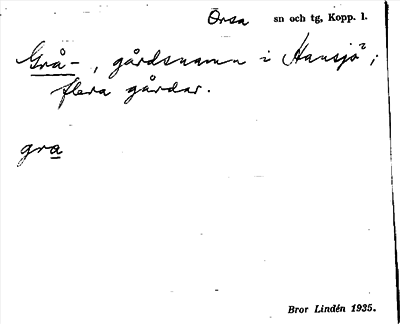 Orsa sn och tg, Kopp. l.
Grå- , gårdsnamn i Hansjö²;
flera gårdar.
gra
Bror Lindén 1935.